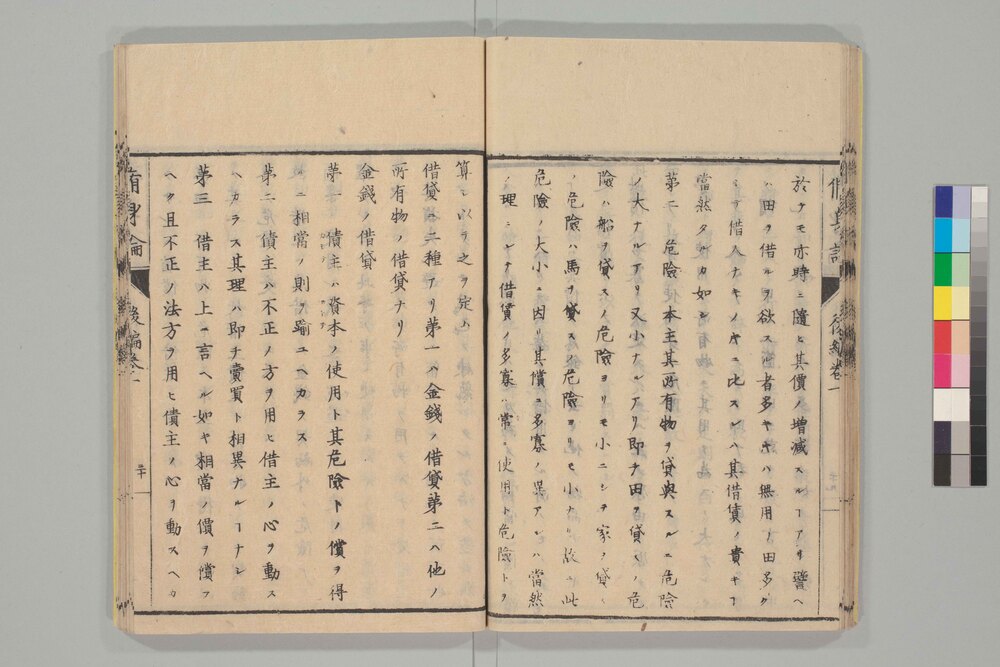 於テモ亦時ニ隨ヒ其價ノ増減スルヿアリ譬ヘ
ハ田ヲ借ルヲ欲スル者多キキハ無用ノ田多ク
シテ借人ナキノ時ニ比スレハ其借賃ノ貴キヿ
當然タルカ如シ
第二 危險本主其所有物ヲ貸與スルニ危險
ノ大ナルアリ又小ナルアリ即チ田ヲ貸スノ危
險ハ船ヲ貸スノ危險ヨリモ小ニシテ家ヲ貸ス
ノ危險ハ馬ヲ貸スノ危險ヨリモ小ナリ故ニ此
危險ノ大小ニ因リ其償ニ多寡ノ異アルハ當然
ノ理ニシテ借賃ノ多寡ハ常ニ使用ト危險トヲ
脩身論 後編卷一 二十
算シ以テ之ヲ定ム
借貸ニ二種アリ第一ハ金錢ノ借貸第二ハ他ノ
所有物ノ借貸ナリ
金錢ノ借貸
第一 債主ハ資本ノ使用ト其危險トノ償ヲ得
ルニ相當ノ則ヲ踰ユヘカラス
第二 債主ハ不正ノ方ヲ用ヒ借主ノ心ヲ動ス
ヘカラス其理ハ即チ賣買ト相異ナルヿナシ
第三 借主ハ上ニ言ヘル如キ相當ノ償ヲ償フ
ヘク且不正ノ法方ヲ用ヒ債主ノ心ヲ動スヘカ